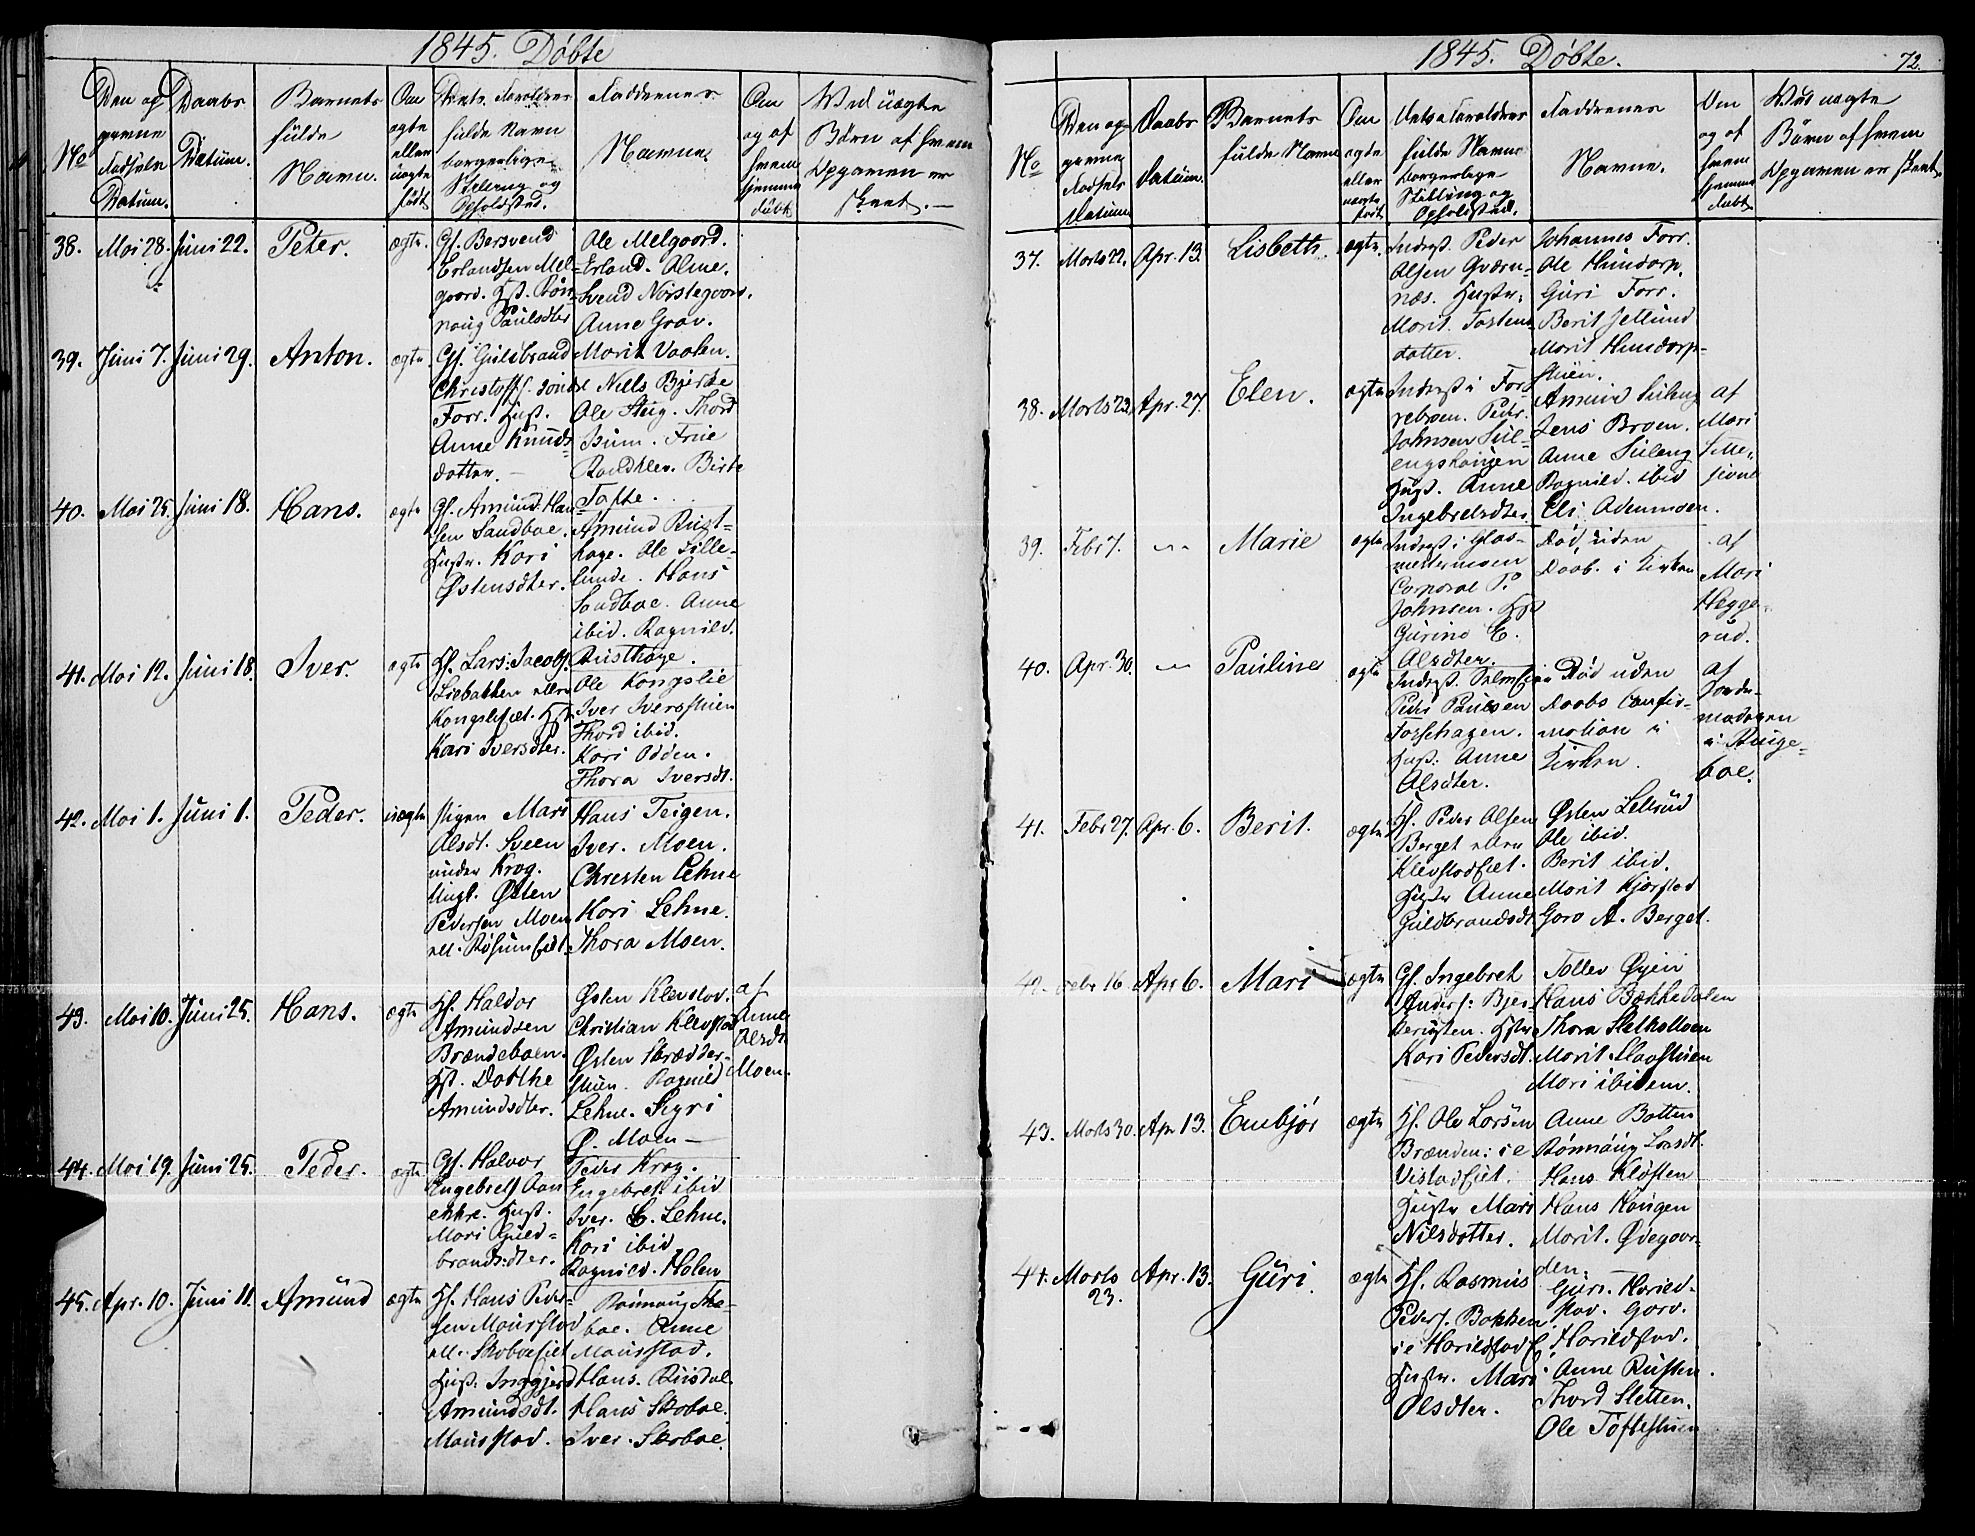 1845. Døbte
No
Den af
givne
Fødsels
Datum.
Daabs
Datum.
Barnets
fulde
Navn.
Om
ægte
eller
uægte
født
fulde Navn
borgerlige
Stilling og
Opholdsted.
Faddernes
Navne.
Om
og af
hvem
hjemme
døbt
Ved uægte
Børn af hvem
Opgaven er
skeet. —
38. Mai 28. Juni 22. Peter. ægte.
Gf. Bersvend
Erlandsen Mel-
goard. Hst. Røn-
naug Paulsdter
Ole Melgoard.
Erland. Alme.
Svend Nörstegoord.
Anne Grav.
Morit Vaalen.
39. Juni 7. Juni 29. Anton. ægte
Gf. Gulbrand
Christoffs. sönd
Forr. Hust.
Anne Knuds-
datter. —
Nills Bjerke
Ole Haug. Thord
Isum. Frue
Randklev. Birte
Tofte.
40. Mai 25. Juni 18. Hans. ægte
Gf. Amund Han-
sen Sandboe.
Hustr. Kari
Østensdter.
Amund Rust-
hage. Ole Lille-
lunde. Hans
Sandboe. Anne
ibid. Ragnild.
Rusthage.
41. Mai 12. Juni 18. Iver. ægte
Hf. Lars Jacobs.
Liebakken
Kongslifiet. Hst.
Kari Iversdter.
Ole Kongslie
Iver Iversstuen
Thord ibid.
Kari Odden.
Thora Iversdt.
42. Mai 1. Juni 1. Peder. uægte
Pigen Mari
Olsdt. Sveen
under Krog.
Ungk. Østen
Pedersen Moen
Hans Teigen.
Iver. Moen.
Christen Lehne
Kari Lehne.
Thora Moen.
43. Mai 10. Juni 25. Hans. ægte
Hf. Haldor
Amundsen
Brændeboen.
Hst. Dorthe
Amundsdter.
Østen Klevstad.
Christian Klevstad
Østen Skrædder-
stuen. Ragnild
Lehne. Sigri
Ø. Moen —
af
Anne
Olsdt.
Moen.
44. Mai 19. Juni 25. Peder. ægte
Gf. Halvor
Engebrets. Aan
ekre. Hust.
Mari Guld-
brandsdter.
Peder Krog.
Engebret ibid
Iver. C. Lehne.
Kari ibid
Ragnild. Holen
45. Apr. 10. Juni 11. Amund ægte
Hf. Hans Peder-
sen Maurstad
ell. Skoboefiet
Hust. Inggjerd
Amundsdt.
Maurstad.
Rönnaug Sko-
boe. Anne
Maurstad.
Hans. Rusdal.
Hans Skoboe.
Iver. Skoboe.
1845. Døbte.
72.
No
Den og-
givne
Fødsels
Datum
Daabs
Datum.
Barnets
fulde Navn
Om
ægte
eller
uægte
født
Dets Forældres
fulde Navne
Borgerlige
Stilling og
Opholdsted.
Faddernes
Navne.
Om
og af
hvem
hjemme
døbt
Ved uægte
Børn af hvem
Opgaven er skeet.
37. Marts 22. Apr. 13. Lisbeth. ægte.
Inderst. Peder
Olsen Qværn-
næs. Hustr.
Marit. Tostens-
datter.
Johannes Forr.
Ole Hundorp.
Guri Forr.
Berit Jellund
Morit Hundorp-
stuen.
38. Marts 23. Apr. 27. Elen. ægte
Inderst i For-
rebroen. Peder.
Johnsen Sul-
engshougen
Hust. Anne
Ingebretsdter
Amund Suleng
Jens Broen.
Anne Suleng
Ragnild. ibid
Eli Odenmoen.
af
Mari
39. Febr 7. — Marie ægte
Inderst i Glas-
mestermoen
Corporal P.
Johnsen. Hst
Gurine E.
Olsdter.
Død, uden
Daab. i Kirken
af
Mari
Hegge-
rud.
40. Apr. 30. — Pauline ægte
Peder Paulsen
Forrhagen.
Hust. Anne
Olsdter.
Død uden
Daabs Confir-
mation i
Kirken.
af
Jorde-
modren
i Ringe-
boe.
41. Febr 27. Apr. 6. Berit. ægte
Hf. Peder Olsen
Berget
Klevstadfiet.
Hustr Anne
Guldbrandsdt.
Østen Lillerud
Ole ibid.
Berit ibid.
Morit Kjørstad
Goro A. Berget.
42. Febr 16 Apr 6. Mari ægte
Gf. Ingebret
Anders. Bjer-
kerusten. Hstr
Kari Pedersdt.
Tollev Øyen
Hans Bækkedalen
Thora Stelholloen
Morit Slaastuen
Mari ibidem.
43. Marts 30. Apr 13. Embjør ægte
Hf. Ole Larsen
Brænden. i e
Vistadfiet.
Hustr Mari
Nilsdatter.
Anne Botten
Rönnaug Larsdt.
Hans Kløften
Hans Haugen
Morit. Ødegoor-
den.
44. Marts
23. Apr. 13. Guri. ægte
Hf. Rasmus
Peders. Bakken
i e Harildstadf.
Hustr. Mari
Olsdter.
Guri. Harild-
stad. Goro.
Harildstad.
Anne Rusten.
Thord Sletten.
Ole Toftestuen